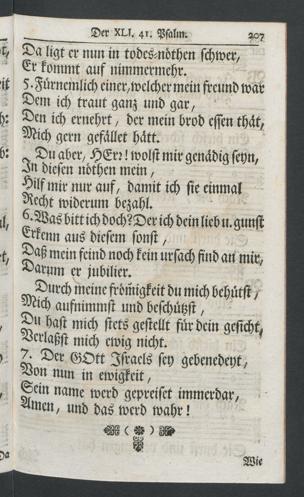 Der XLI. 41. Psalm. 207
Da ligt er nun in todes-nöthen schwer,
Er kommt auf nimmermehr.
5. Fürnemlich einer, welcher mein freund war
Dem ich traut ganz und gar,
Den ich ernehrt, der mein brod essen thät,
Mich gern gefället hätt.
Du aber, HErr! wolst mir genädig seyn,
In diesen nöthen mein,
Hilf mir nur auf, damit ich sie einmal
Recht widerum bezahl.
6. Was bitt ich doch? Der ich dein lieb u. gunst
Erkenn aus diesem sonst,
Daß mein feind noch kein ursach find an mir,
Darum er jubilier.
Durch meine frömigkeit du mich behütst,
Mich aufnimmst und beschützst,
Du hast mich stets gestellt für dein gesicht,
Verlaßst mich ewig nicht.
7. Der GOtt Israels sey gebenedeyt,
Von nun in ewigkeit,
Sein name werd gepreiset immerdar,
Amen, und das werd wahr!
Wie